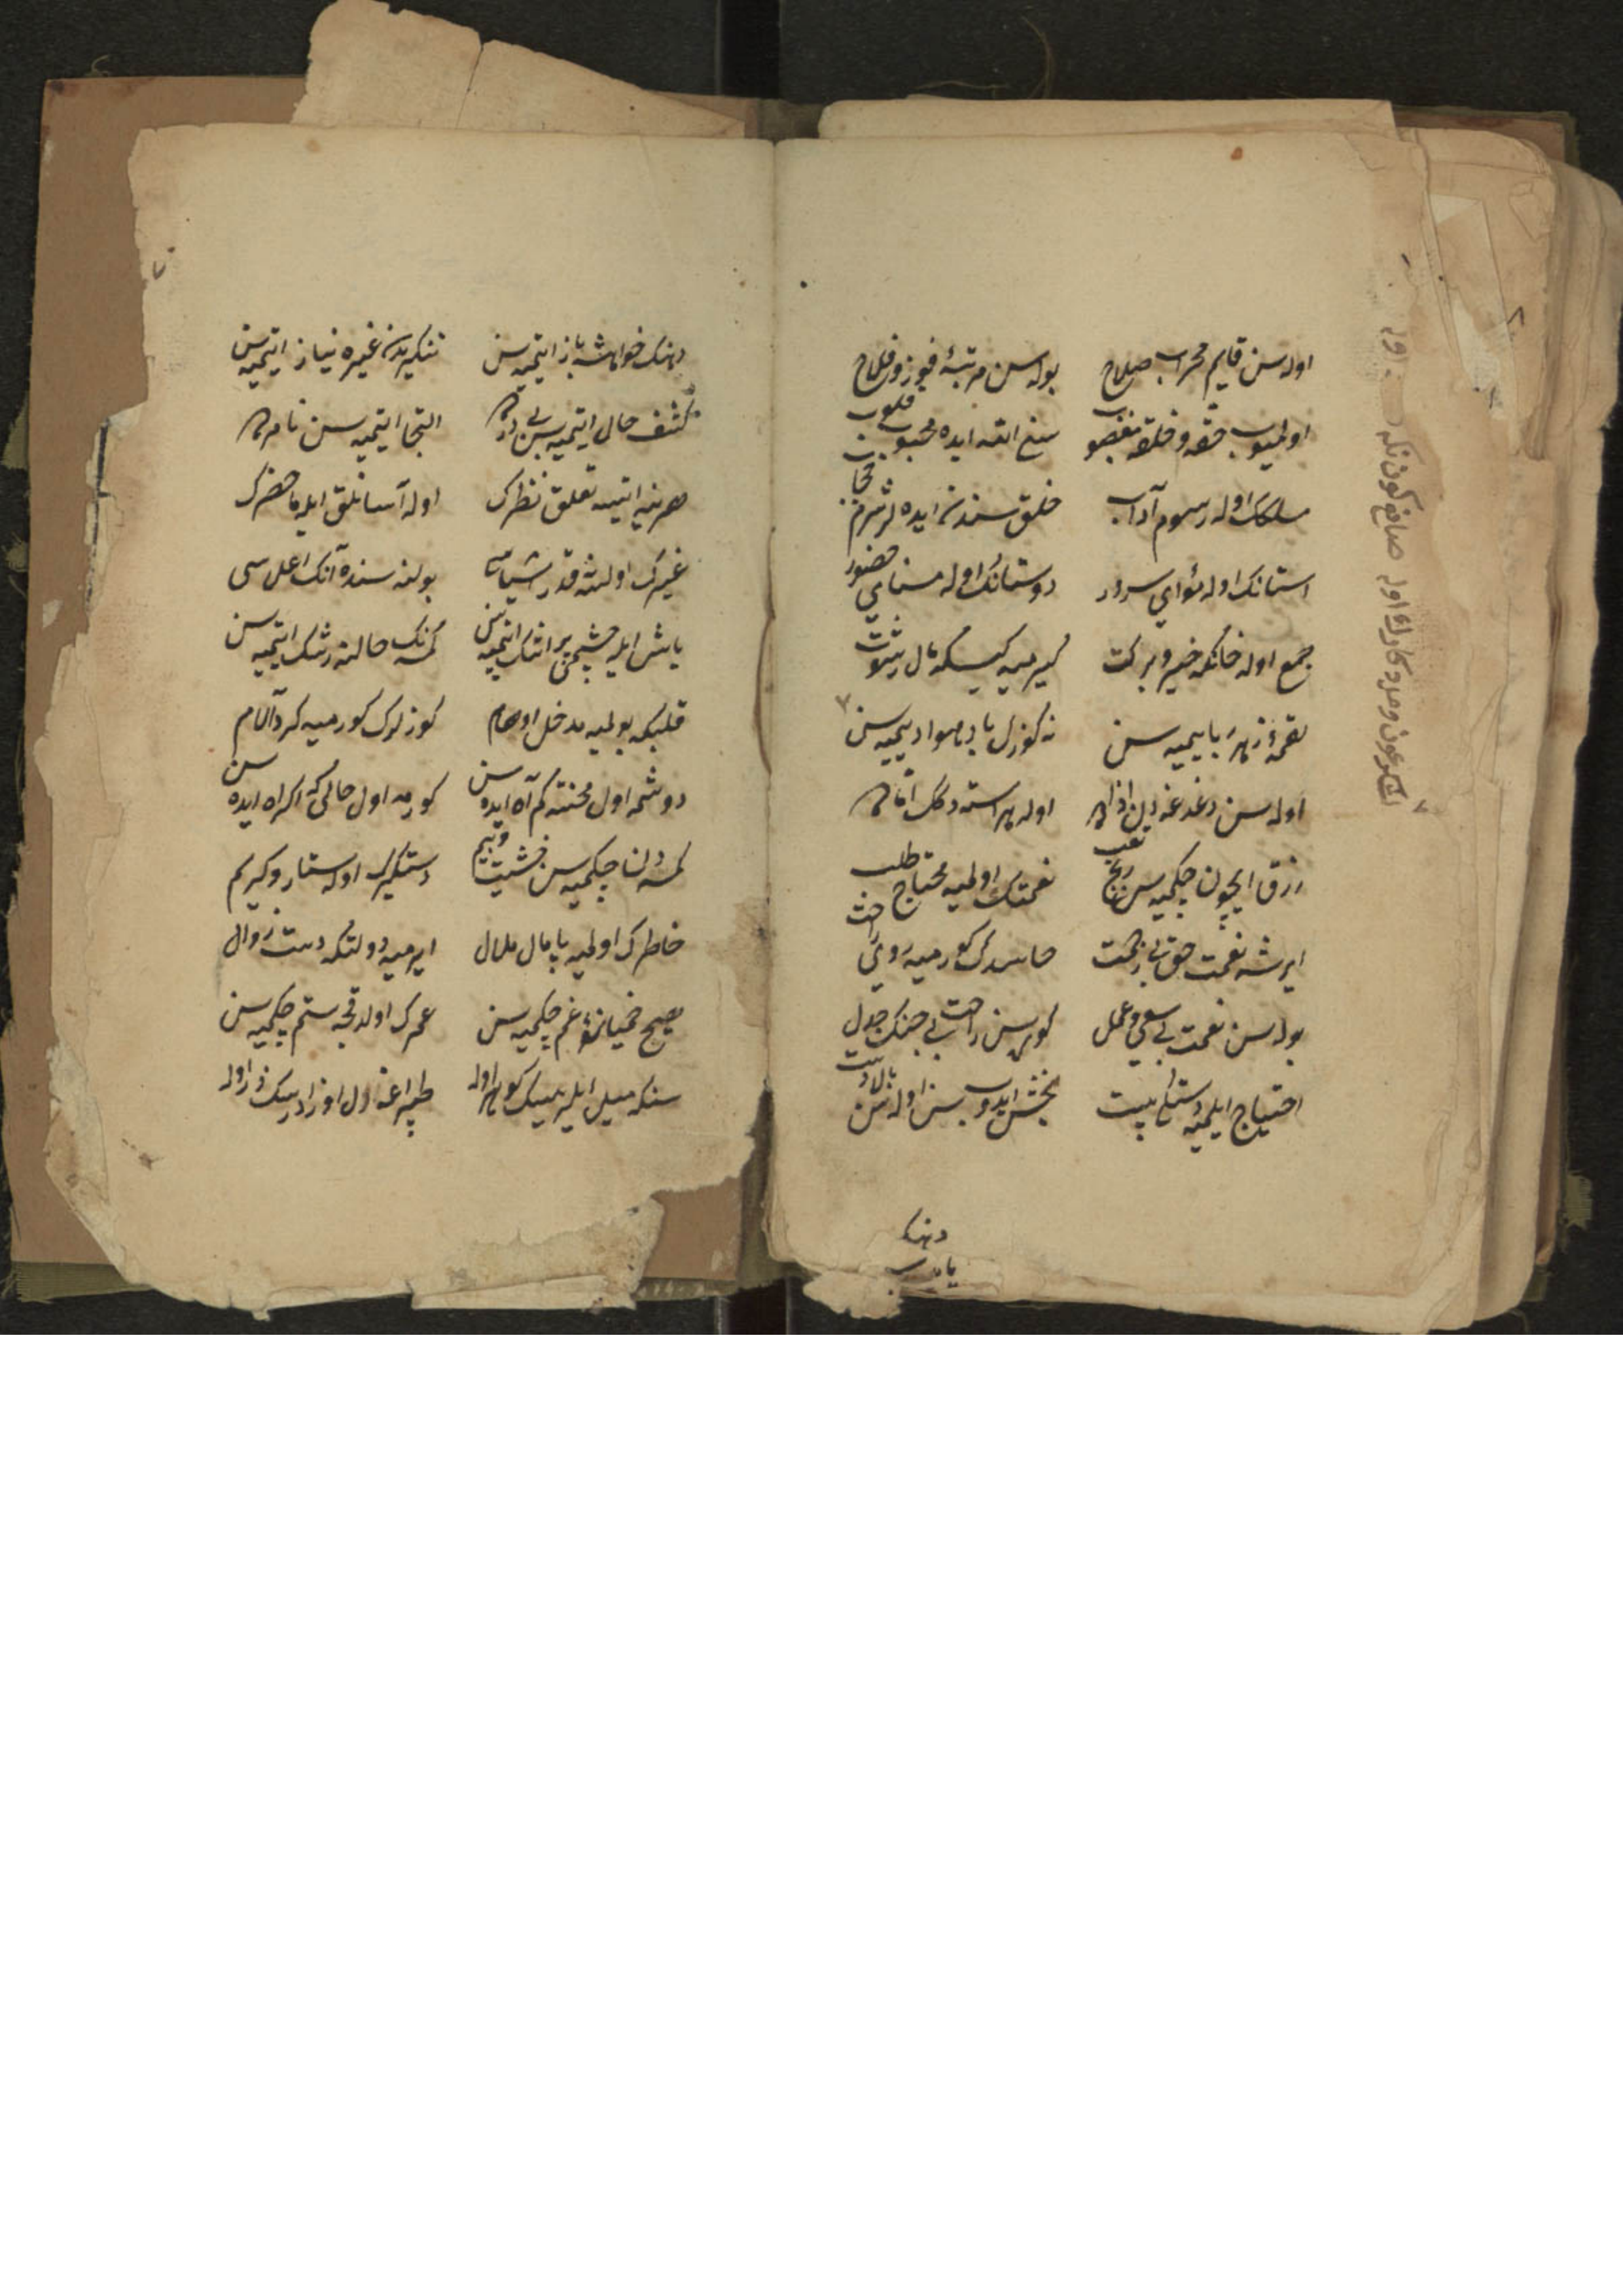 اوله سن قایم محراب صلاح
بوله سن مرتبهٔ فوز و فلاح
اولمیوب حقه و خلقه مغضوب
سنی ایده محبوب قلوب
مسلکک اوله رسوم آداب
خلق سندن ایده لر شرم حجاب
استانک اوله مٔوای سرور
دوستانک اوله حضور
جمع اوله خانکه خیر و برکت
کیرمیه کیسکه مال رشوت
لقمهٔ زهر با ییمیه سن
نه کوزل باد هوا دیمیه سن
اوله سن دغدغه دن
اوله هر استدکک
رزق ایچون چکمیه سن رنج تعب
نعمتک اولمیه محتاج طلب
ایرشه نعمت حق بی زحمت
حاسدک کورمیه روی راحت
بوله سن نعمت بی سعی و عمل
کوره سن راحت بی جنک جدل
احتیاج ایلمیه دستکی پست
بخشش ایدوب سن اوله سن بالادست
دهنک
یارب
دهنک خواهشه باز ایتمیه سن
تنکریدن غیره نیاز ایتمیه سن
کشف حال ایتمیه سن بی
التجا ایتمیه سن
هر نیه ایتسه تعلق نظرک
اوله آسانلق ایله ما حضرک
غیرک اولنسه قدر شناسی
بولنه سنده آنک اعلی سی
یاش ایله چشمی پر اشک ایتمیه سن
کمسه نک حالنه رشک ایتمیه سن
قلبکه بولمیه مدخل اوهام
کوزلرک کورمیه کرد آلام
دوشمه اول محنته کم آه ایده سن
کورمه اول حالی که اکراه ایده سن
کمسه دن چکمیه سن خشیت و بیم
دستکیرک اوله ستار و کریم
خاطرک اولمیه پامال ملال
ایرمیه دولتکه دست زوال
صبح خمیازهٔ غم چکمیه سن
عمرک اولدقجه ستم چکمیه سن
سنکه میل ایلیه سک کوهر اوله
طپراغه اول اوزادرسک زر اوله